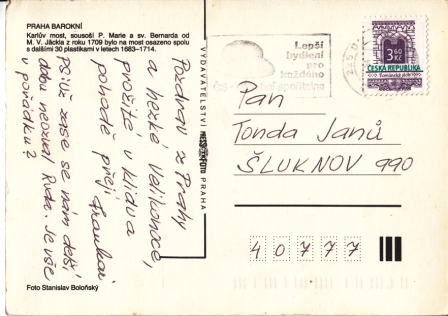 PRAHA BAROKNÍ
Karlův most, sousoší P. Marie a sv. Bernarda od
M. V. Jäckla z roku 1709 bylo na most osazeno spolu
s dalšími 30 plastikami v letech 1683–1714.
Pozdrav z Prahy
a hezké Velikonoce,
prožité v klidu a
pohodě přejí
PS: Už zase se nám delší
dobu neozval Ruda. Je vše
v pořádku?
Foto Stanislav Boloňský
VYDAVATELSTVÍ PRAHA
Lepší
bydlení
pro
každého
spořitelna
3,60
Kč
ČESKÁ REPUBLIKA
Pan
Tonda Janů
ŠLUKNOV 990
40777